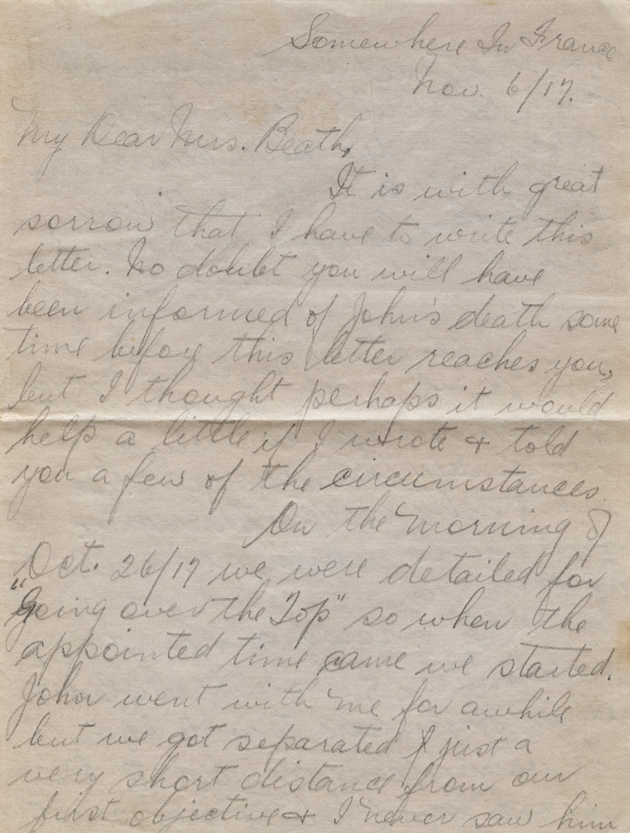 Somewhere In France
Nov. 6/17.
My Dear Mrs. Beath,
It is with great
sorrow that I have to write this
letter. No doubt you will have
been informed of John's death some
time before this letter reaches you,
but I thought perhaps it would
help a little if I wrote & told
you a few of the circumstances.
On the morning of
Oct. 26/17 we were detailed for
"going over the Top" so when the
appointed time came we started.
John went with me for awhile
but we got separated just a
very short distance from our
first objective & I never saw him